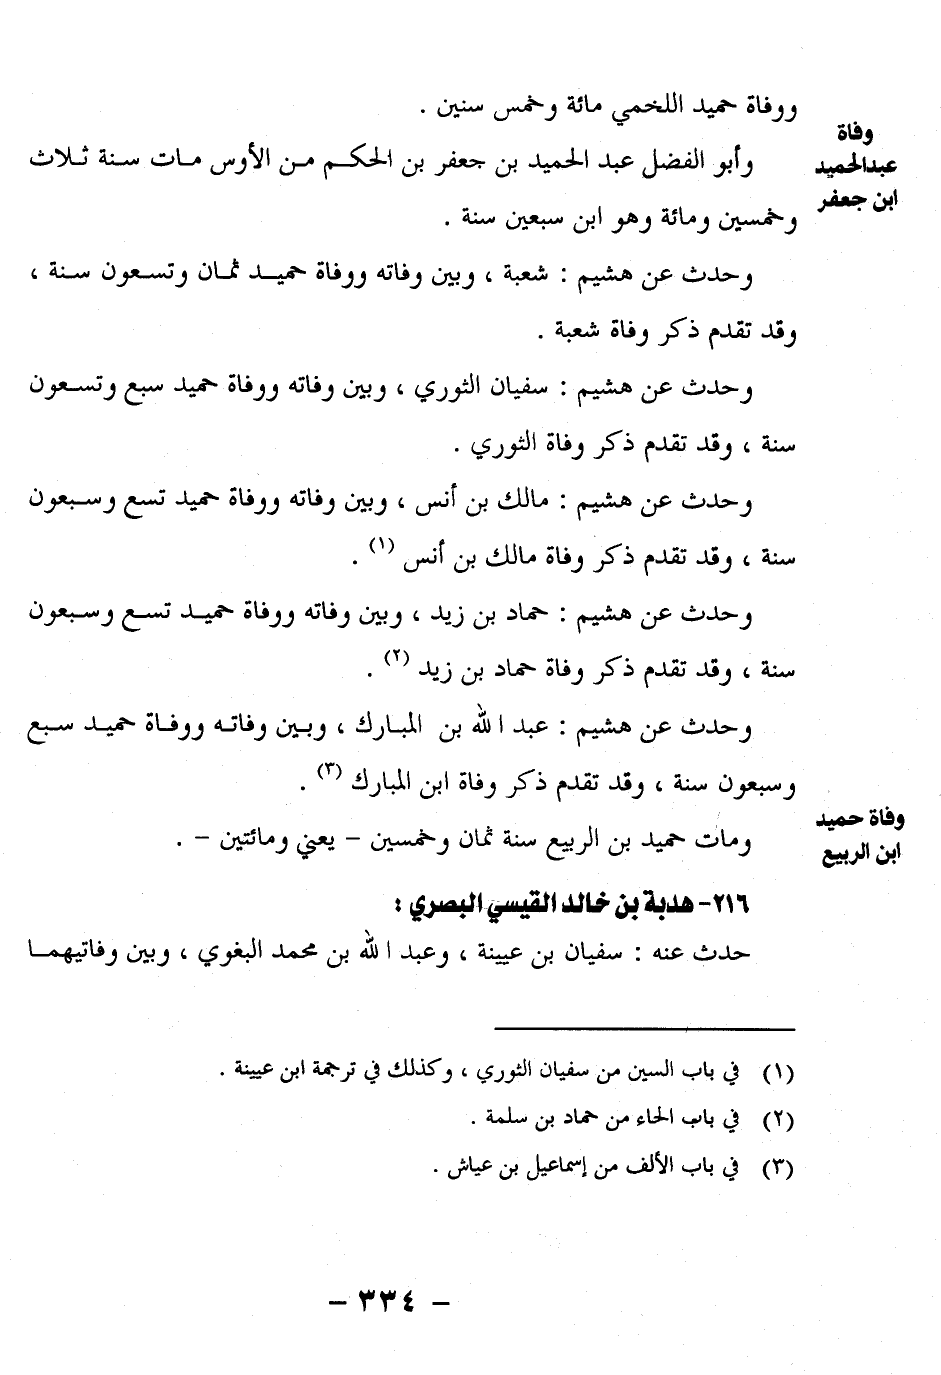 ووفاة حميد اللخمي مائة وخمس سنين .
وفاة
عبدالحميد
ابن جعفر
وأبو الفضل عبد الحميد بن جعفر بن الحكم من الأوس مات سنة ثلاث
وخمسين ومائة وهو ابن سبعين سنة .
وحدث عن هشيم : شعبة ، وبين وفاته ووفاة حميد ثمان وتسعون سنة ،
وقد تقدم ذكر وفاة شعبة .
وحدث عن هشيم : سفيان الثوري ، وبين وفاته ووفاة حميد سبع وتسعون
سنة ، وقد تقدم ذكر وفاة الثوري .
وحدث عن هشيم : مالك بن أنس ، وبين وفاته ووفاة حميد تسع وسبعون
سنة ، وقد تقدم ذكر وفاة مالك بن أنس (١) .
وحدث عن هشيم : حماد بن زيد ، وبين وفاته ووفاة حميد تسع وسبعون
سنة ، وقد تقدم ذكر وفاة حماد بن زيد (٢) .
وحدث عن هشيم : عبد الله بن المبارك ، وبين وفاته ووفاة حميد سبع
وسبعون سنة ، وقد تقدم ذكر وفاة ابن المبارك (٣) .
وفاة حميد
ابن الربيع
ومات حميد بن الربيع سنة ثمان وخمسين – يعني ومائتين – .
٢١٦- هدبة بن خالد القيسي البصري :
حدث عنه : سفيان بن عيينة ، وعبد الله بن محمد البغوي ، وبين وفاتيهما
(١) في باب السين من سفيان الثوري ، وكذلك في ترجمة ابن عيينة .
(٢) في باب الحاء من حماد بن سلمة .
(٣) في باب الألف من إسماعيل بن عياش .
– ٣٣٤ –